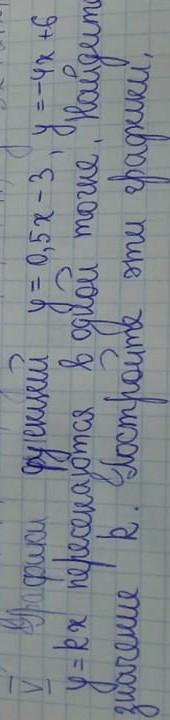 V Графики функций y = 0,5x - 3, y = -4x + 6
y = kx пересекаются в одной точке. Найдите
значение k. Постройте эти графики,